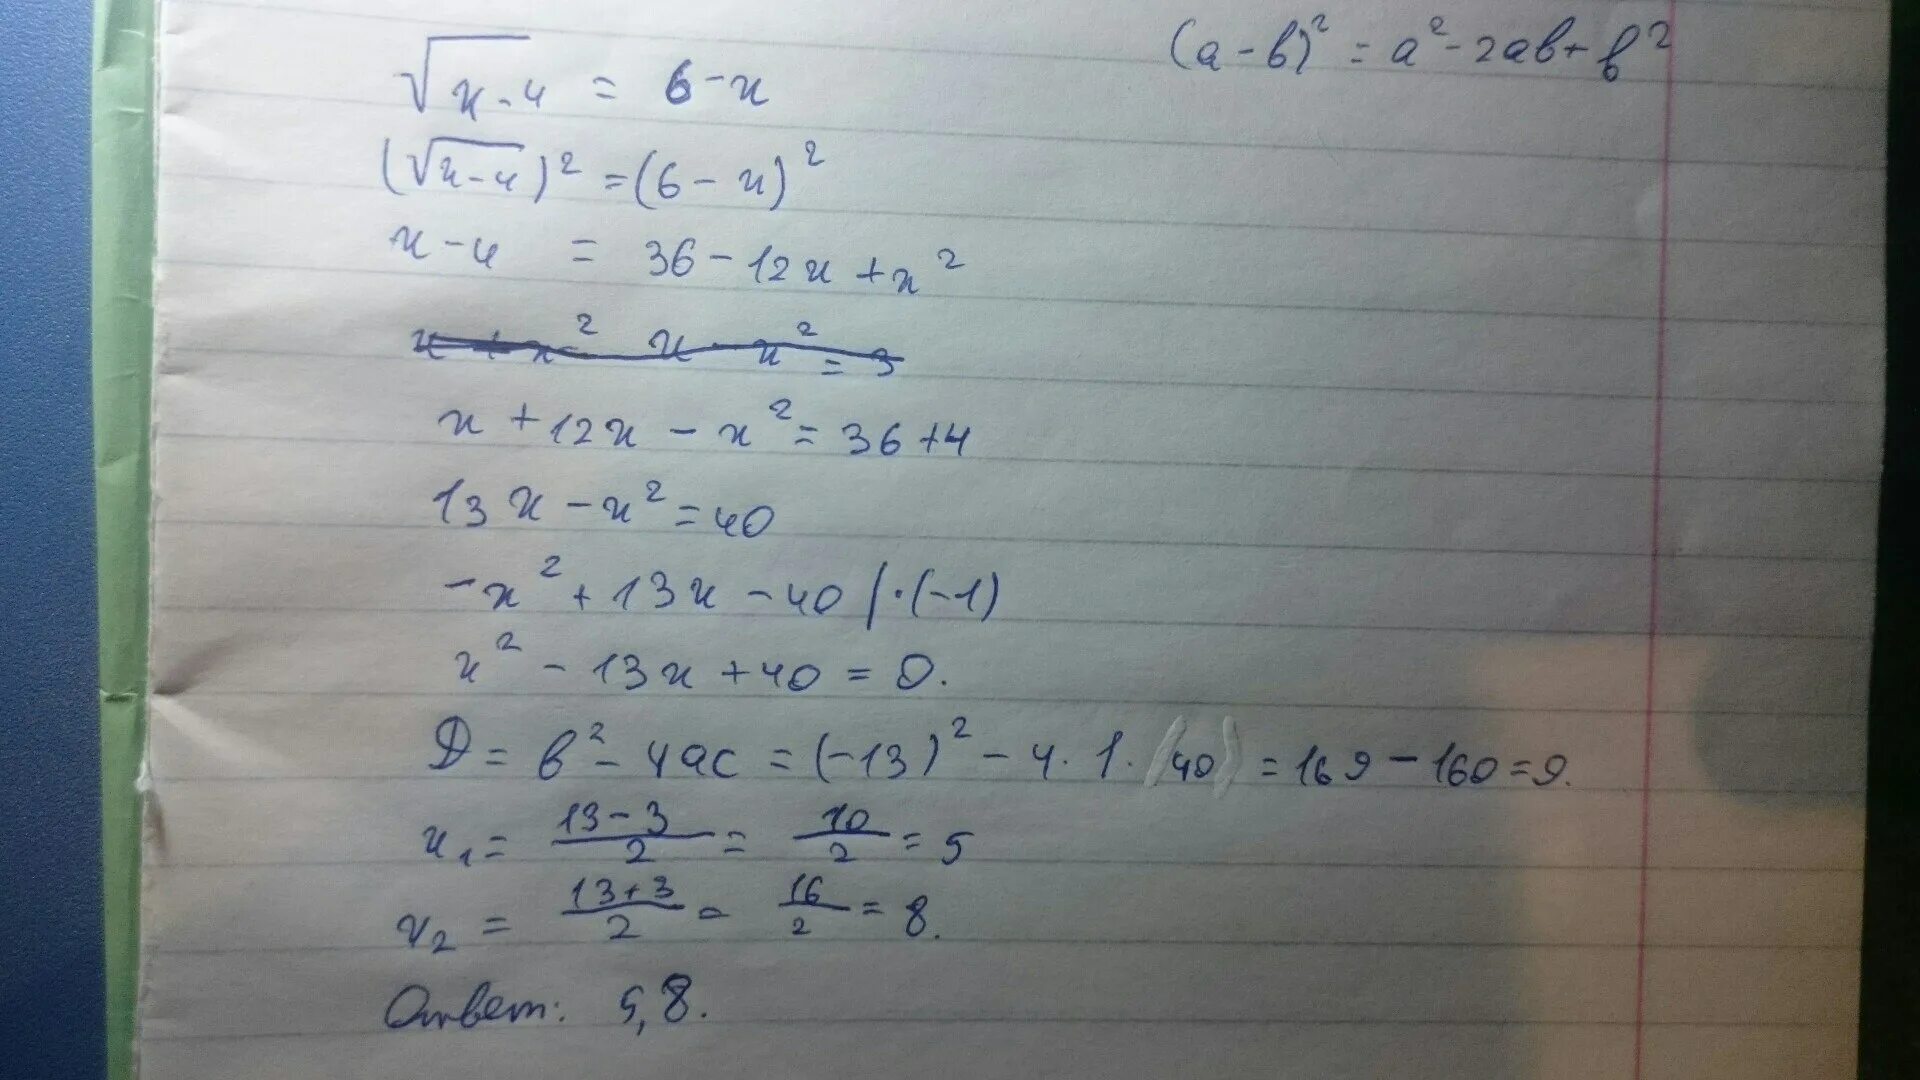 √x-4 = 6-x
(a-b)² = a²-2ab+b²
(√x-4)² = (6-x)²
x-4 = 36-12x+x²
x+12x-x² = 36+4
13x-x² = 40
-x²+13x-40 |·(-1)
x²-13x+40 = 0.
D = b²-4ac = (-13)²-4·1·(40) = 169-160 = 9.
x₁ = 13-3/2 = 10/2 = 5
x₂ = 13+3/2 = 16/2 = 8.
Ответ: 5,8.